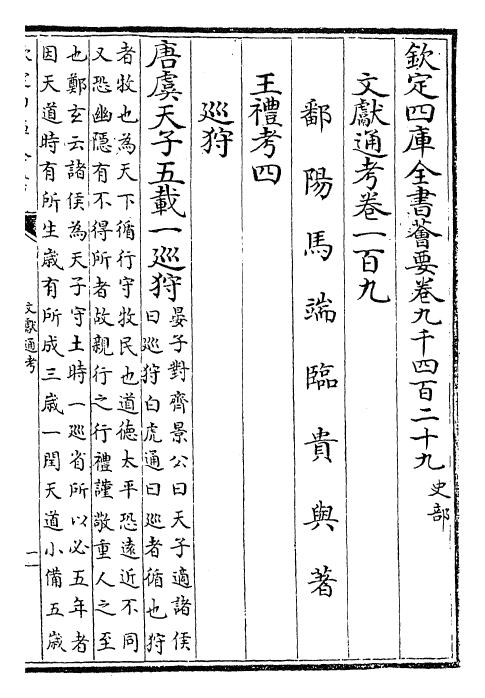 欽定四庫全書薈要卷九千四百二十九史部
文獻通考卷一百九
鄱陽馬端臨貴與著
王禮考四
廵狩
唐虞天子五載一廵狩晏子對齊景公曰天子適諸侯
曰廵狩白虎通曰廵者循也狩
者牧也為天下循行守牧民也道德太平恐逺近不同
又恐幽隠有不得所者故親行之行禮謹敬重人之至
也鄭玄云諸侯為天子守土時一廵省所以必五年者
因天道時有所生歳有所成三歳一閏天道小備五歳
文獻通考
一